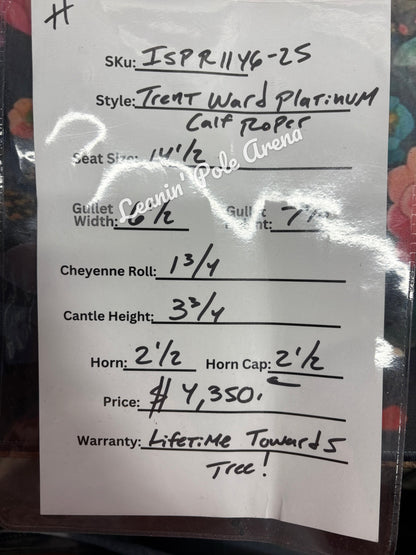 H
SKu: ISPR1146-25
Style: Trent Ward Platinum
Calf Roper
Seat Size: 14 1/2
Leanin' Pole Arena
Gullet Width: 6 1/2
Cheyenne Roll: 1 3/4
Cantle Height: 3 3/4
Horn: 2 1/2 Horn Cap: 2 1/2
Price: $4,350.
Warranty: Lifetime Towards
Tree!